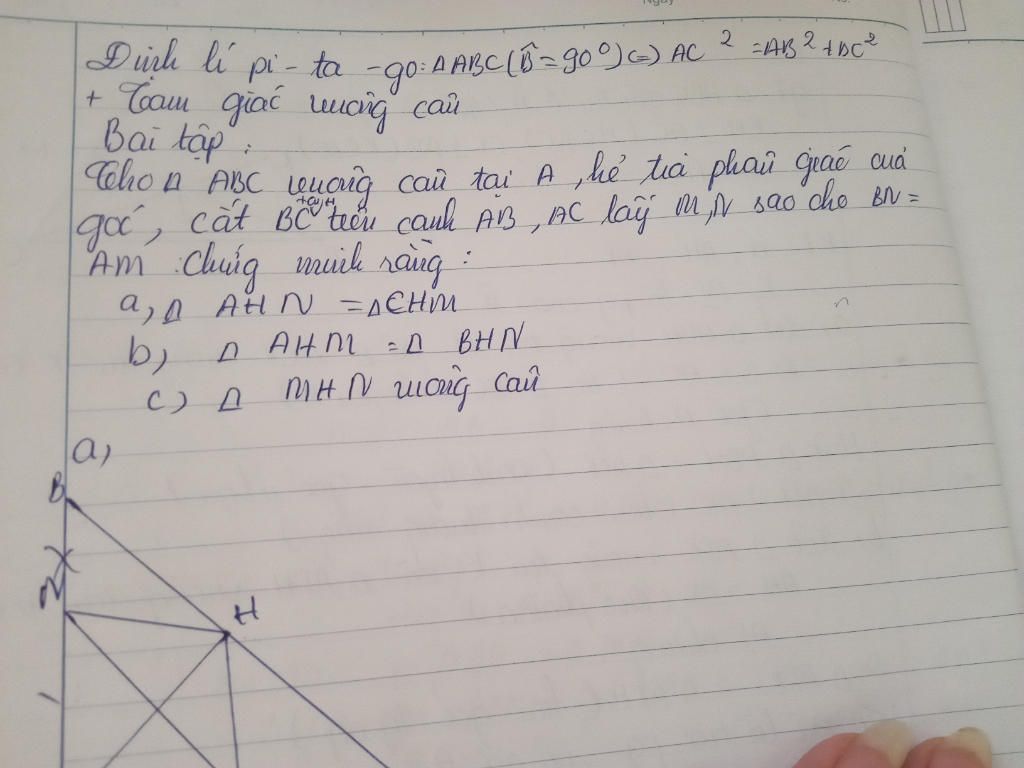 Ngày
No.
Định lí pi-ta-go: Δ ABC (B̂ = 90⁰) (=) AC² = AB² + BC²
+ Tam giác vuông cân
Bài tập:
Cho Δ ABC vuông cân tại A, kẻ tia phân giác của
góc, cắt BC tại H trên cạnh AB, AC lấy M, N sao cho BN =
AM. Chứng minh rằng:
a, Δ AHN = Δ CHM
b) Δ AHM = Δ BHN
c) Δ MHN vuông cân
a,
B
H